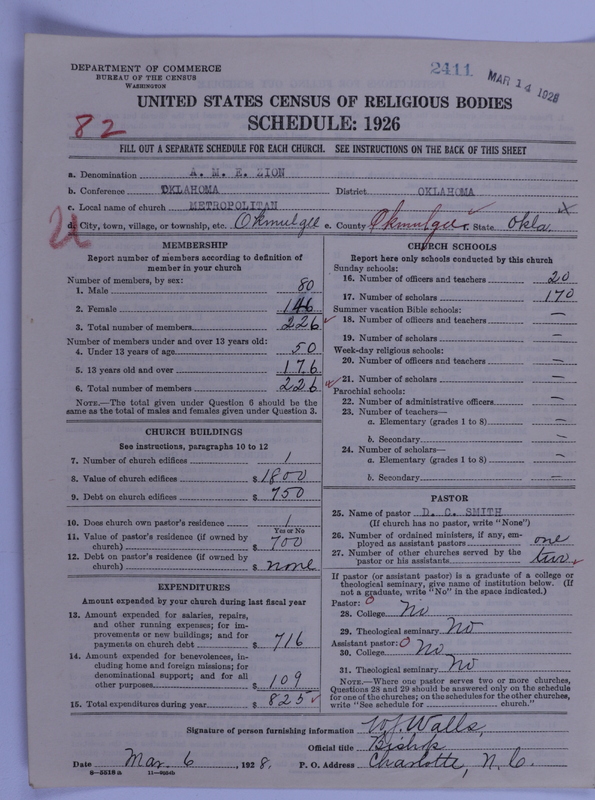 DEPARTMENT OF COMMERCE
BUREAU OF THE CENSUS
WASHINGTON
2411
MAR 14 1928
UNITED STATES CENSUS OF RELIGIOUS BODIES
SCHEDULE: 1926
82
FILL OUT A SEPARATE SCHEDULE FOR EACH CHURCH. SEE INSTRUCTIONS ON THE BACK OF THIS SHEET
a. Denomination A. M. E. ZION
b. Conference OKLAHOMA District OKLAHOMA
c. Local name of church METROPOLITAN
d. City, town, village, or township, etc. Okmulgee e. County Okmulgee f. State Okla.
U
MEMBERSHIP
Report number of members according to definition of member in your church
Number of members, by sex:
1. Male 80
2. Female 146
3. Total number of members 226
Number of members under and over 13 years old:
4. Under 13 years of age 50
5. 13 years old and over 176
6. Total number of members 226
NOTE.—The total given under Question 6 should be the
same as the total of males and females given under Question 3.
CHURCH BUILDINGS
See instructions, paragraphs 10 to 12
7. Number of church edifices 1
8. Value of church edifices $ 1800
9. Debt on church edifices $ 750
10. Does church own pastor's residence 1
Yes or No
11. Value of pastor's residence (if owned by
church) $ 700
12. Debt on pastor's residence (if owned by
church) $ none
EXPENDITURES
Amount expended by your church during last fiscal year
13. Amount expended for salaries, repairs,
and other running expenses; for im-
provements or new buildings; and for
payments on church debt $ 716
14. Amount expended for benevolences, in-
cluding home and foreign missions; for
denominational support; and for all
other purposes $ 109
15. Total expenditures during year $ 825
CHURCH SCHOOLS
Report here only schools conducted by this church
Sunday schools:
16. Number of officers and teachers 20
17. Number of scholars 170
Summer vacation Bible schools:
18. Number of officers and teachers —
19. Number of scholars —
Week-day religious schools:
20. Number of officers and teachers —
21. Number of scholars —
Parochial schools:
22. Number of administrative officers —
23. Number of teachers—
a. Elementary (grades 1 to 8) —
b. Secondary —
24. Number of scholars—
a. Elementary (grades 1 to 8) —
b. Secondary —
PASTOR
25. Name of pastor D. C. SMITH
(If church has no pastor, write "None")
26. Number of ordained ministers, if any, em-
ployed as assistant pastors one
27. Number of other churches served by the
pastor or his assistants two
If pastor (or assistant pastor) is a graduate of a college or
theological seminary, give name of institution below. (If
not a graduate, write "No" in the space indicated.)
Pastor: 0
28. College No
29. Theological seminary No
Assistant pastor: 0
30. College No
31. Theological seminary No
NOTE.—Where one pastor serves two or more churches,
Questions 28 and 29 should be answered only on the schedule
for one of the churches; on the schedules for the other churches,
write "See schedule for church."
Signature of person furnishing information W. J. Walls,
Official title Bishop
Date Mar. 6, 1928. P. O. Address Charlotte, N. C.